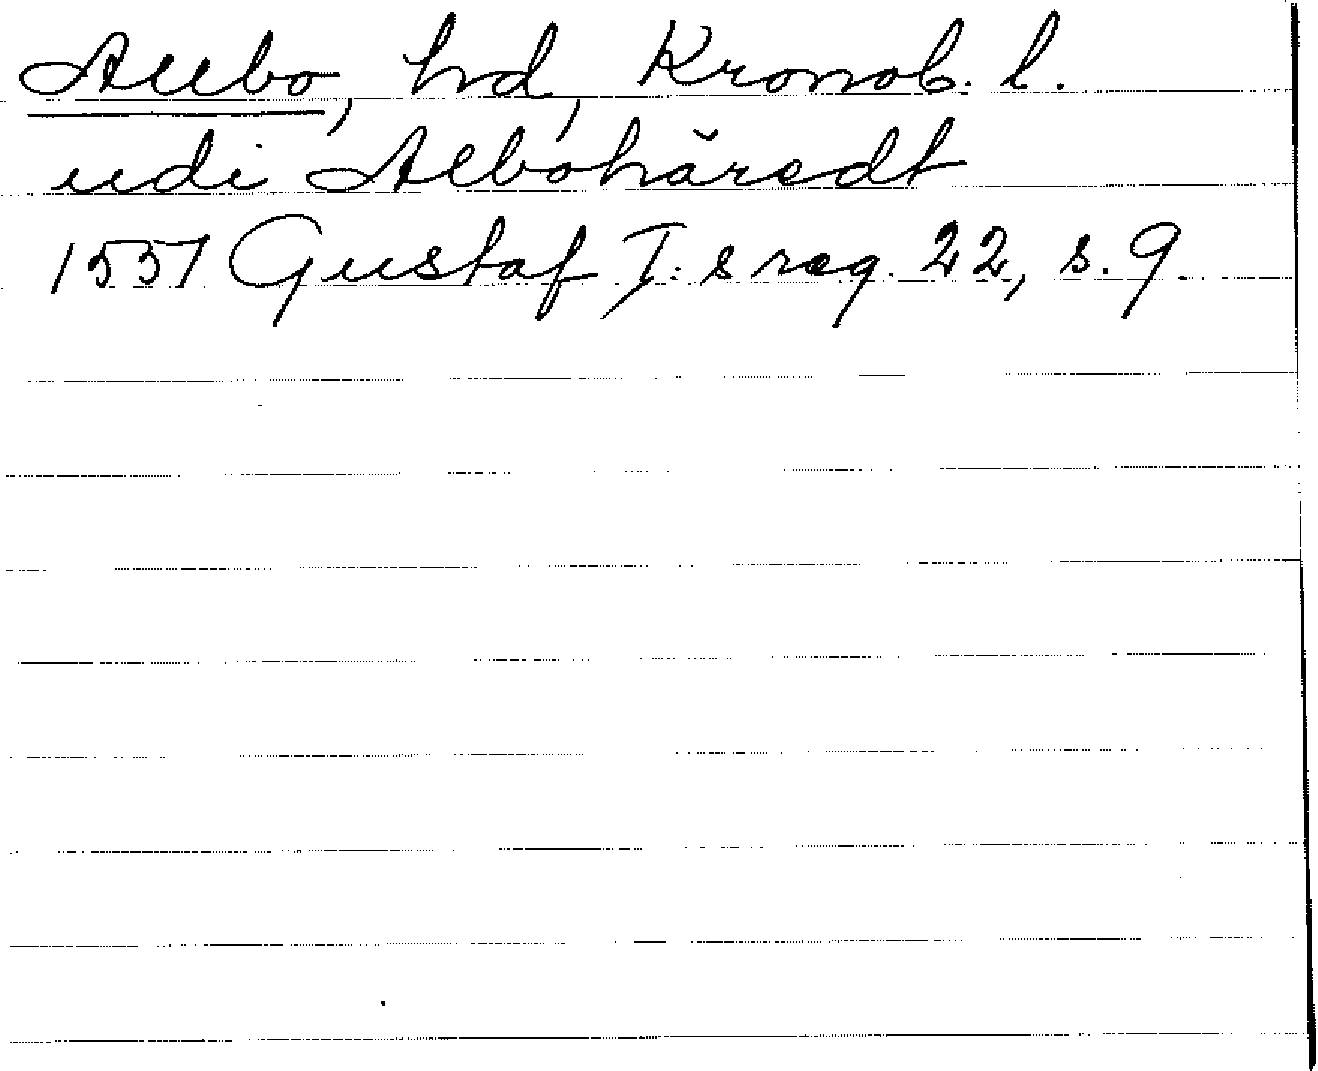 Allbo, hd, Kronob. l.
udi Albohäredt
1551 Gustaf I:s reg. 22, s. 9